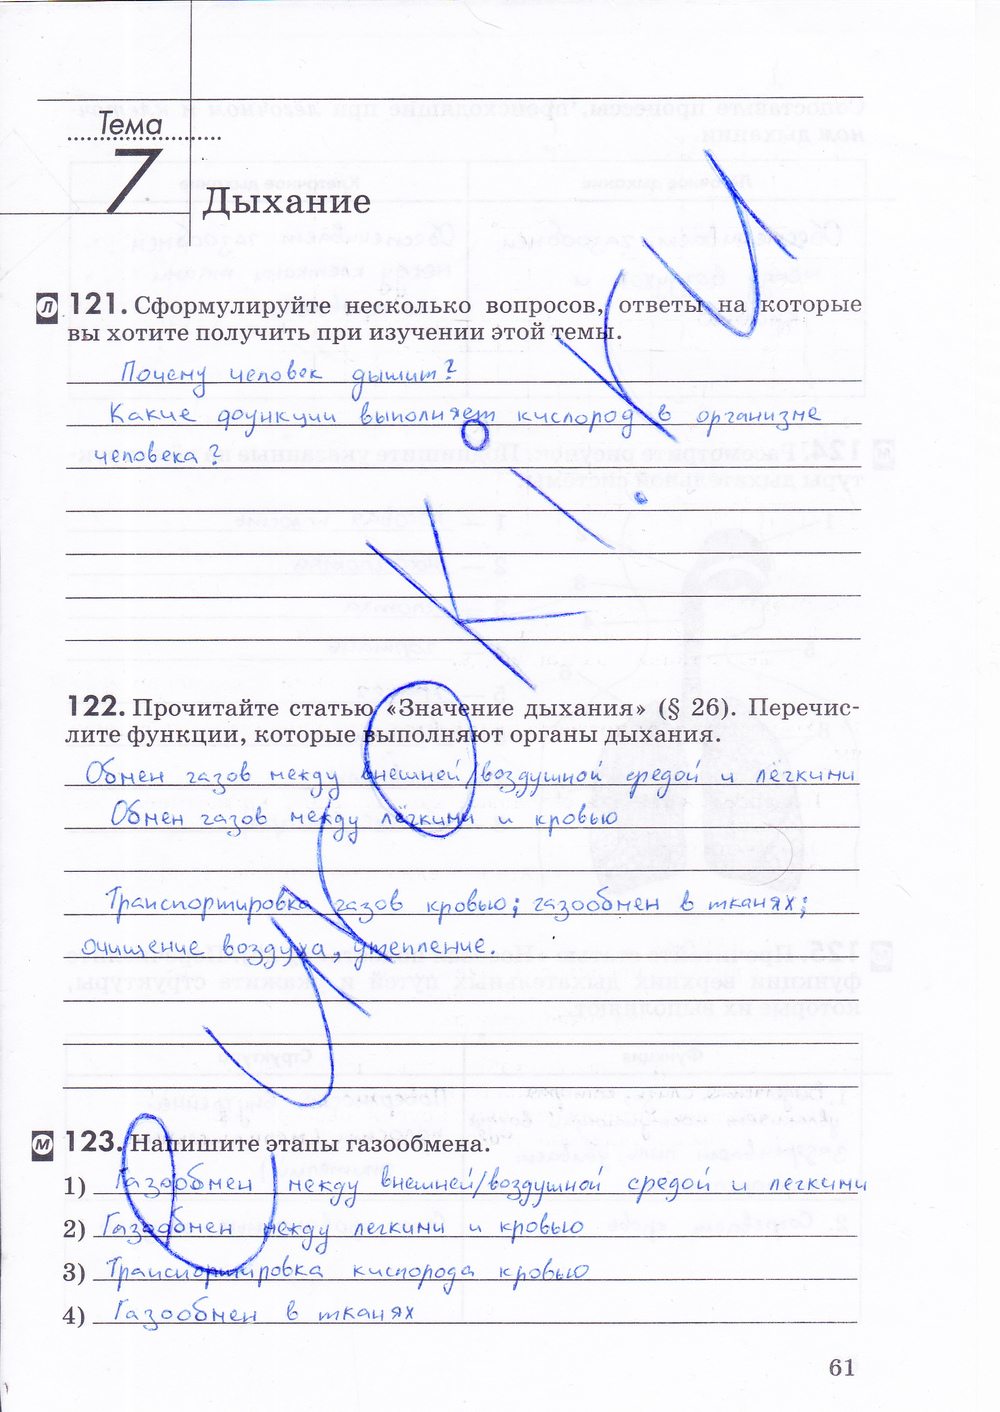 Тема
7
Дыхание
Л 121. Сформулируйте несколько вопросов, ответы на которые
вы хотите получить при изучении этой темы.
Почему человек дышит?
Какие функции выполняет кислород в организме
человека?
122. Прочитайте статью «Значение дыхания» (§ 26). Перечис-
лите функции, которые выполняют органы дыхания.
Обмен газов между внешней/воздушной средой и лёгкими
Обмен газов между лёгкими и кровью
Транспортировка газов кровью; газообмен в тканях;
очищение воздуха, утепление.
М 123. Напишите этапы газообмена.
1) Газообмен между внешней/воздушной средой и легкими
2) Газообмен между легкими и кровью
3) Транспортировка кислорода кровью
4) Газообмен в тканях
61